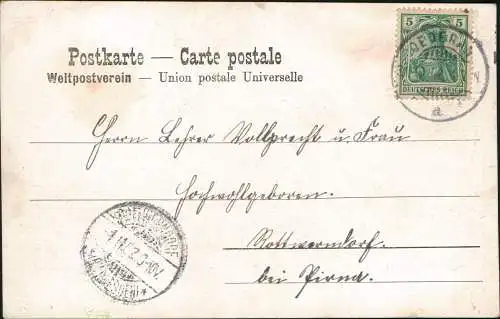 5 5
DEUTSCHES REICH
OEDERAN
a
Postkarte — Carte postale
Weltpostverein — Union postale Universelle
Herrn Lehrer Vollprecht u. Frau
Hochwohlgeboren.
Rottwerndorf
bei Pirna.